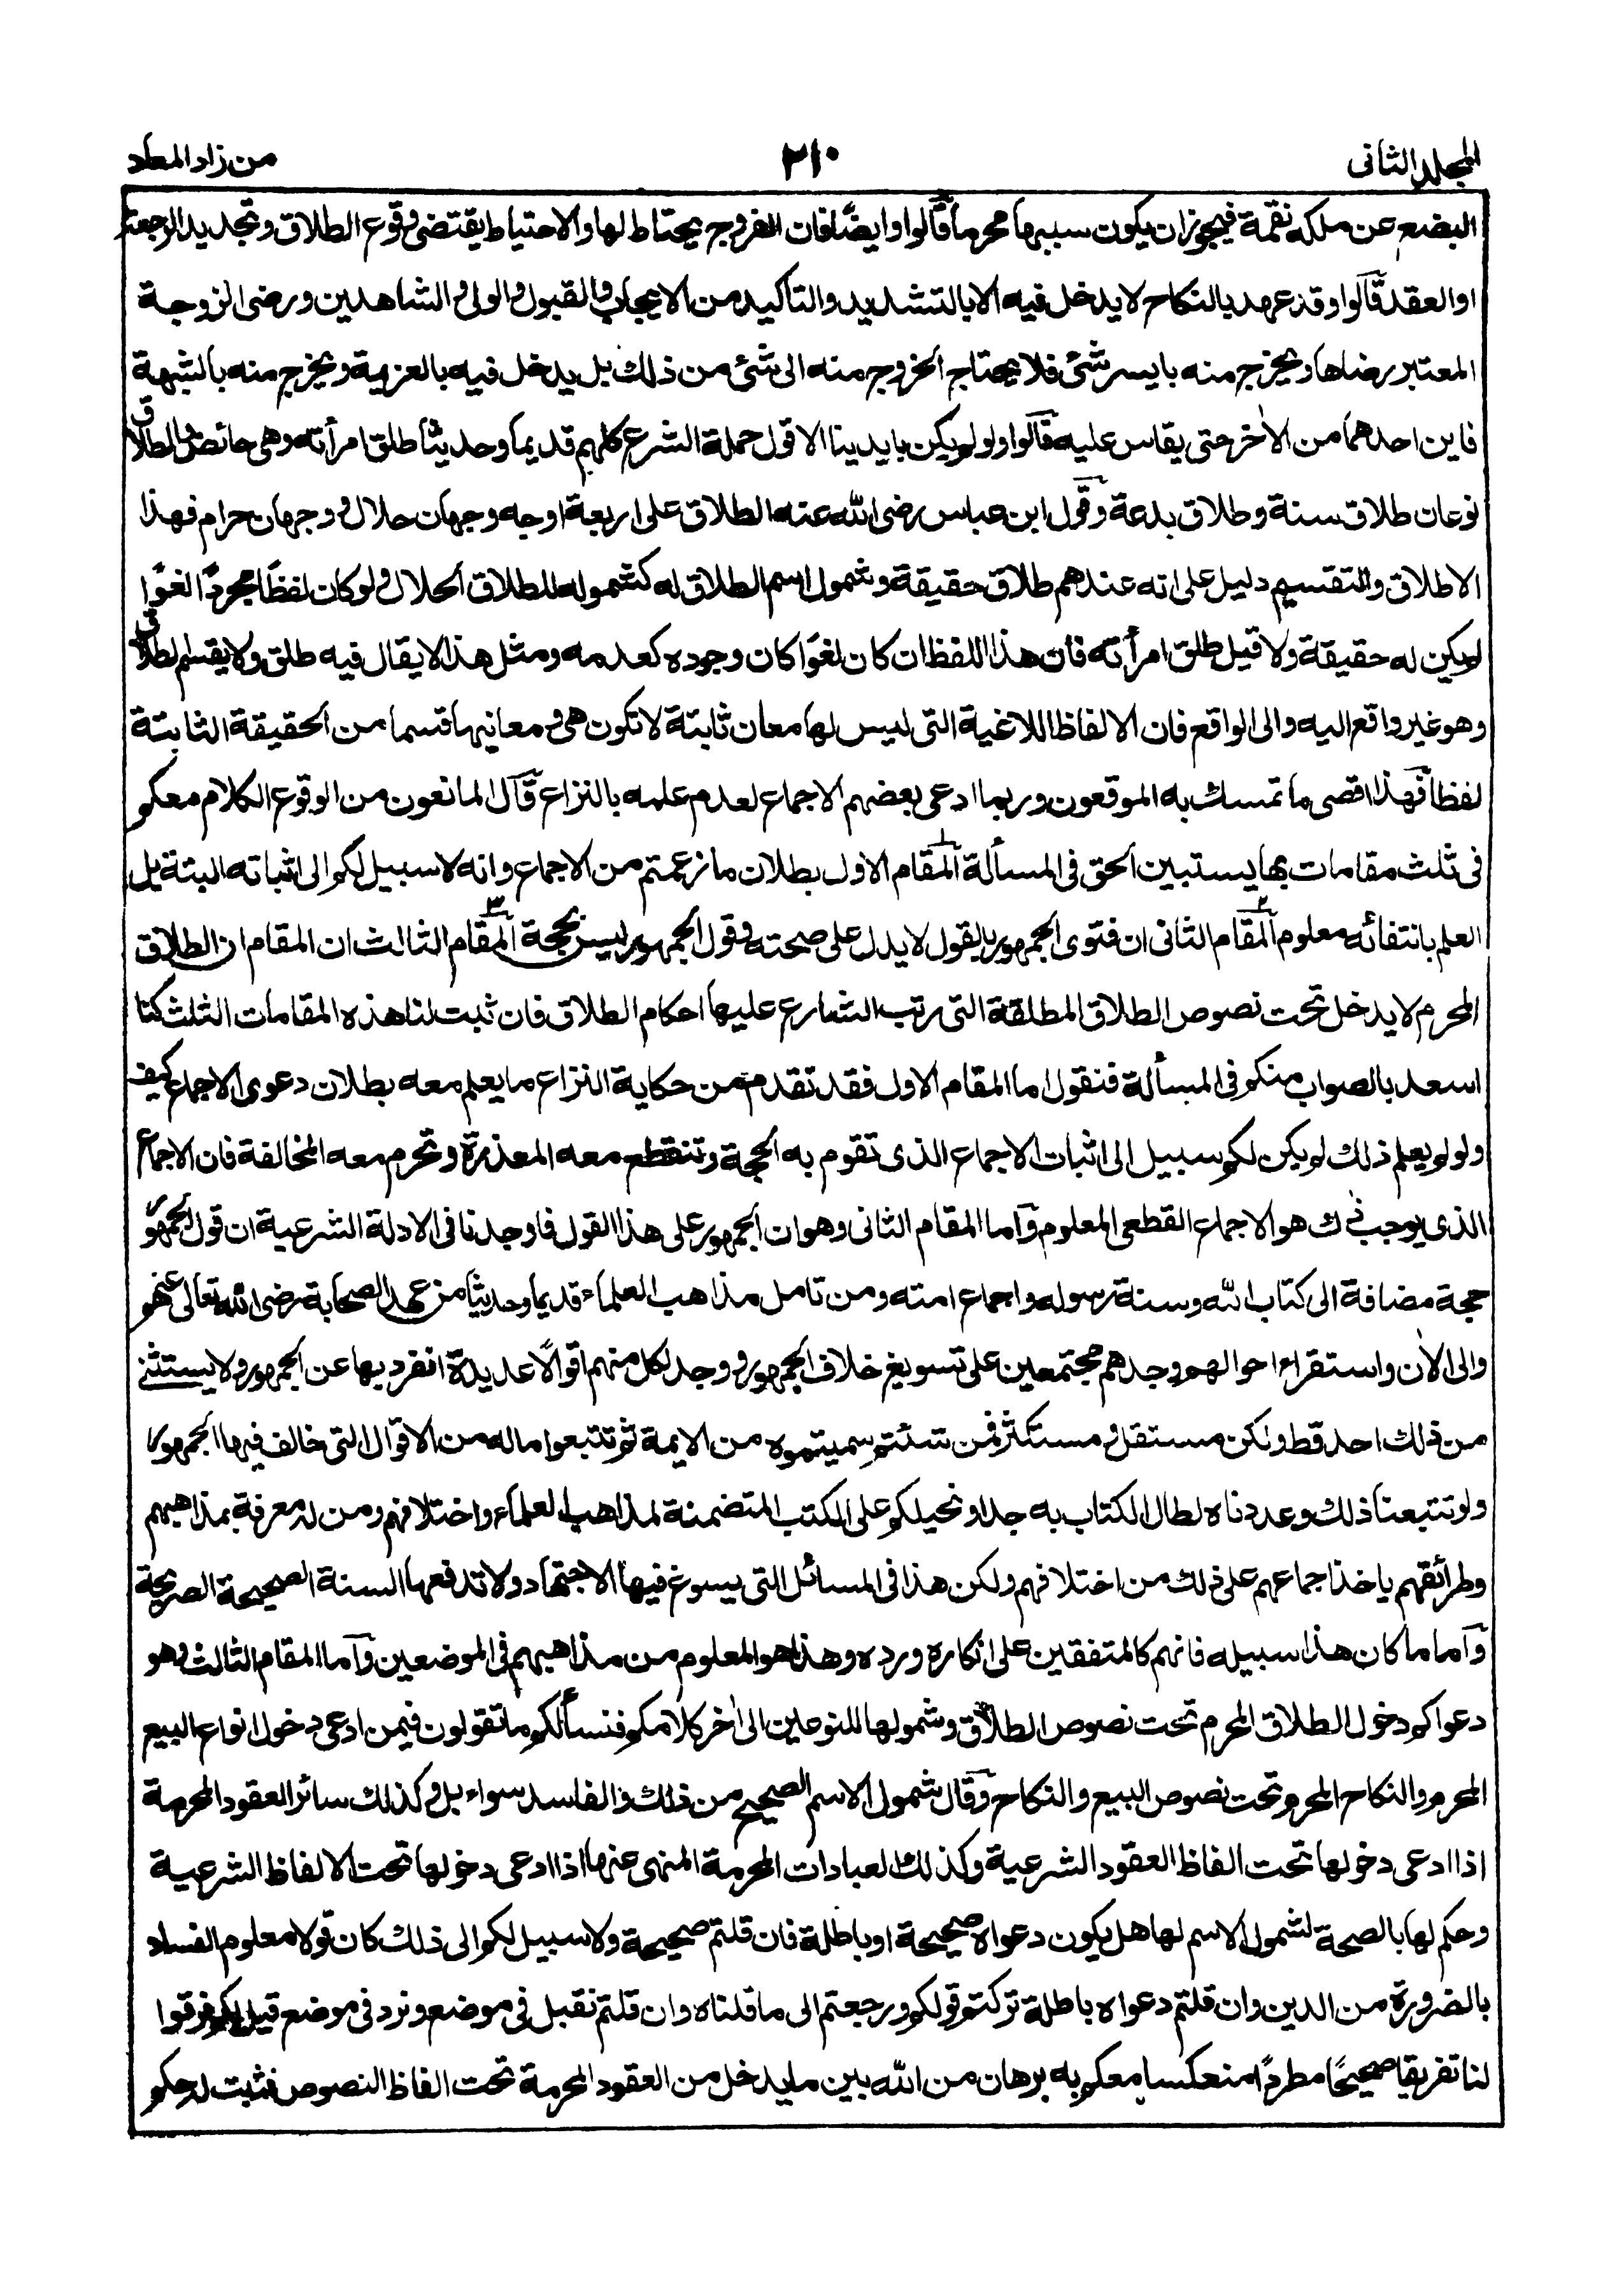 المجلد الثاني
٢١٠
من زاد المعاد
البضع عن ملكه نقمة فيجوز ان يكون سببها محرما قالوا وايضًا فان الفروج يحتاط لها والاحتياط يقتضى وقوع الطلاق وتجديد الرجعة
او العقد قالوا وقد عهد بالنكاح لا يدخل فيه الا بالتشديد والتاكيد من الايجاب والقبول والولى والشاهدين ورضى الزوجة
المعتبر رضاها ويخرج منه بايسر شئ فلا يحتاج الخروج منه الى شئ من ذلك بل يدخل فيه بالعزيمة ويخرج منه بالشبهة
فاين احدهما من الاخر حتى يقاس عليه قالوا ولو لم يكن بايدينا الا قول حملة الشرع كلهم قديما وحديثا طلق امرأته وهى حائض والطلاق
نوعان طلاق سنة وطلاق بدعة وقول ابن عباس رضى الله عنه الطلاق على اربعة اوجه وجهان حلال ووجهان حرام فهذا
الاطلاق والتقسيم دليل على انه عندهم طلاق حقيقة وشمول اسم الطلاق له كشموله للطلاق الحلال ولو كان لفظًا مجردًا لغوًا
لم يكن له حقيقة ولا قيل طلق امرأته فان هذا اللفظ ان كان لغوًا كان وجوده كعدمه ومثل هذا لا يقال فيه طلق ولا يقسم لطلاق
وهو غير واقع اليه والى الواقع فان الالفاظ اللاغية التى ليس لها معان ثابتة لا تكون هى ومعانيها قسما من الحقيقة الثابتة
لفظا فهذا اقصى ما تمسك به الموقعون وربما ادعى بعضهم الاجماع لعدم علمه بالنزاع قال المانعون من الوقوع الكلام معكم
فى ثلث مقامات بها يستبين الحق فى المسألة المقام الاول بطلان ما زعمتم من الاجماع وانه لا سبيل لكم الى اثباته البتة بل
العلم بانتفائه معلوم المقام الثانى ان فتوى الجمهور بالقول لا يدل على صحته وقول الجمهور ليس بحجة المقام الثالث ان المقام ان الطلاق
المحرم لا يدخل تحت نصوص الطلاق المطلقة التى رتب الشارع عليها احكام الطلاق فان ثبت لنا هذه المقامات الثلث كنا
اسعد بالصواب منكم فى المسألة فنقول اما المقام الاول فقد تقدم من حكاية النزاع ما يعلم معه بطلان دعوى الاجماع كيف
ولو لم يعلم ذلك لم يكن لكم سبيل الى اثبات الاجماع الذى تقوم به الحجة وتنقطع معه المعذرة وتحرم معه المخالفة فان الاجماع
الذى يوجب ذلك هو الاجماع القطعى المعلوم واما المقام الثانى وهو ان الجمهور على هذا القول فاوجدنا فى الادلة الشرعية ان قول الجمهور
حجة مضافة الى كتاب الله وسنة رسوله واجماع امته ومن تامل مذاهب العلماء قديما وحديثا من عهد الصحابة رضى الله تعالى عنهم
والى الآن واستقراء احوالهم وجدهم مجتمعين على تسويغ خلاف الجمهور ووجد لكل منهم اقوالًا عديدة انفرد بها عن الجمهور ولا يستثنے
من ذلك احد قط ولكن مستقل ومستكثر فمن شئتم سميتموه من الايمة ثم تتبعوا ماله من الاقوال التى خالف فيها الجمهور
ولو تتبعنا ذلك وعددناه لطال الكتاب به جدا ونحيلكم على الكتب المتضمنة لمذاهب العلماء واختلافهم ومن له معرفة بمذاهبهم
وطرائقهم ياخذ اجماعهم على ذلك من اختلافهم ولكن هذا فى المسائل التى يسوغ فيها الاجتهاد ولا تدفعها السنة الصحيحة الصريحة
واما ما كان هذا سبيله فانهم كالمتفقين على انكاره ورده وهذا هو المعلوم من مذاهبهم فى الموضعين واما المقام الثالث وهو
دعواكم دخول الطلاق المحرم تحت نصوص الطلاق وشمولها للنوعين الى اخر كلامكم فنسألكم ما تقولون فيمن ادعى دخول انواع البيع
المحرم والنكاح المحرم تحت نصوص البيع والنكاح وقال شمول الاسم الصحيح من ذلك والفاسد سواء بل وكذلك سائر العقود المحرمة
اذا ادعى دخولها تحت الفاظ العقود الشرعية وكذلك العبادات المحرمة المنهى عنها اذا ادعى دخولها تحت الالفاظ الشرعية
وحكم لها بالصحة لشمول الاسم لها هل يكون دعواه صحيحة او باطلة فان قلتم صحيحة ولا سبيل لكم الى ذلك كان قولا معلوم الفساد
بالضرورة من الدين وان قلتم دعواه باطلة تركتم قولكم ورجعتم الى ما قلناه وان قلتم نقبل فى موضع ونرد فى موضع قيل لكم فرقوا
لنا تفريقا صحيحًا مطردًا منعكسا معكم به برهان من الله بين ما يدخل من العقود المحرمة تحت الفاظ النصوص فثبت له حكم